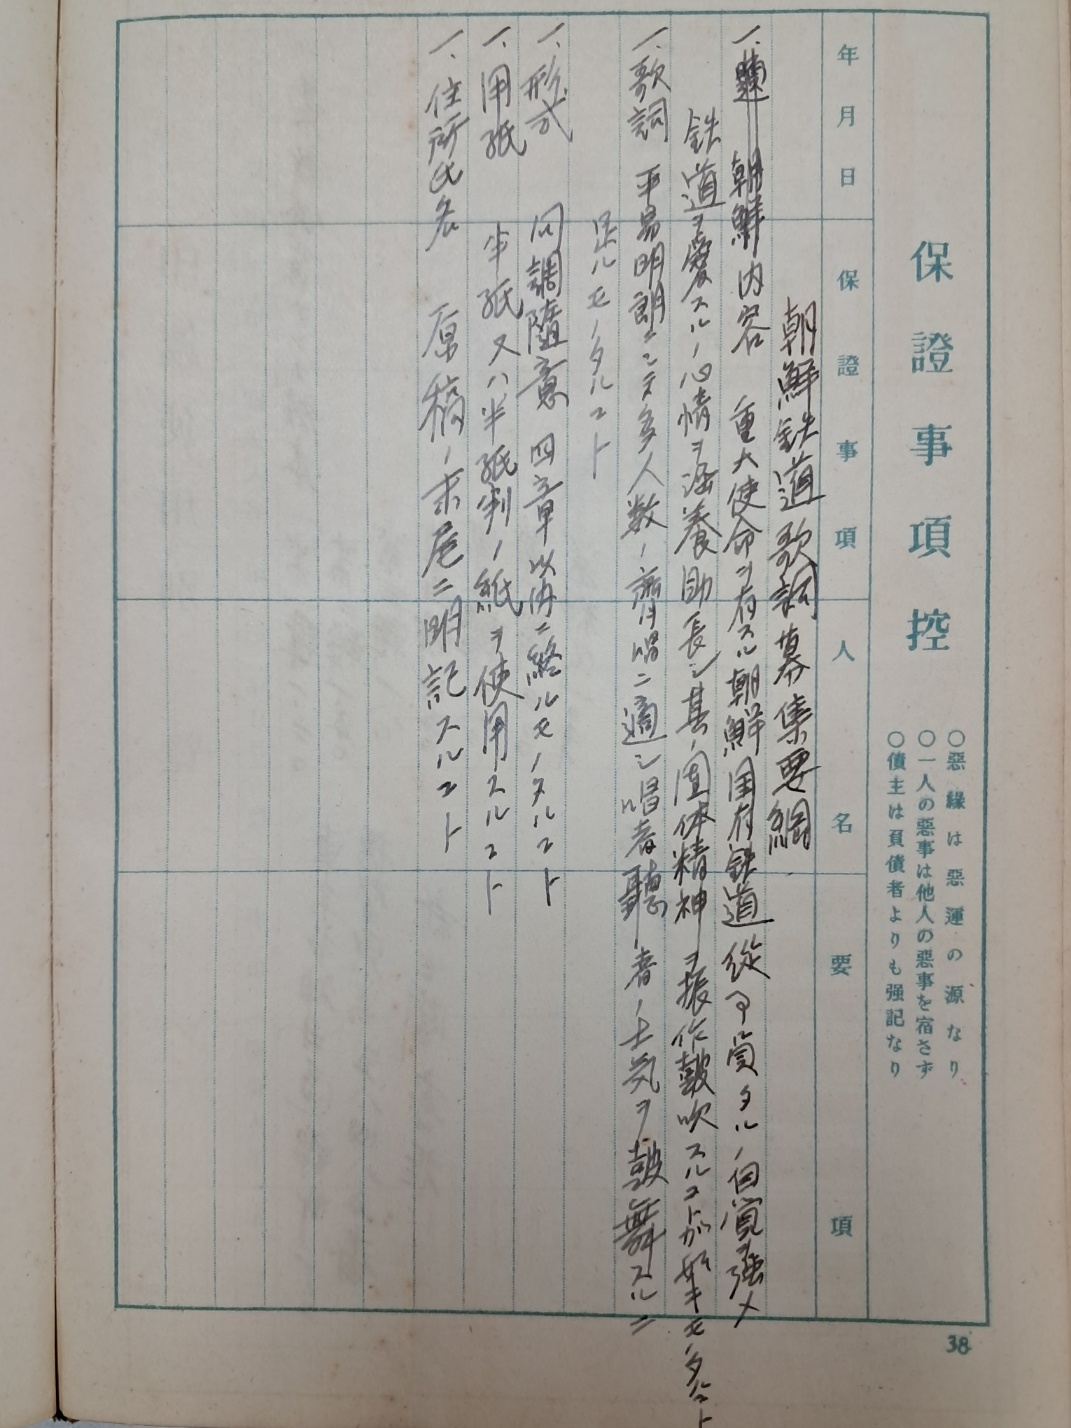 保證事項控
○惡緣は惡運の源なり
○一人の惡事は他人の惡事を宿さず
○債主は負債者よりも强記なり
年月日
保證事項
人名
要項
朝鮮鉄道歌詞募集要綱
一、朝鮮内容 重大使命ヲ有スル朝鮮国有鉄道従事員タルノ自覚ヲ強メ
鉄道ヲ愛スルノ心情ヲ涵養助長シ其ノ団体精神ヲ振作鼓吹スルコトガ出来ルモノタルコト
一、歌詞 平易明朗ニシテ多人数ノ斉唱ニ適シ唱者聴者ノ士気ヲ鼓舞スルニ
足ルモノタルコト
一、形式 同調随意 四章以内ニ終ルモノタルコト
一、用紙 半紙又ハ半紙判ノ紙ヲ使用スルコト
一、住所氏名 原稿ノ末尾ニ明記スルコト
38